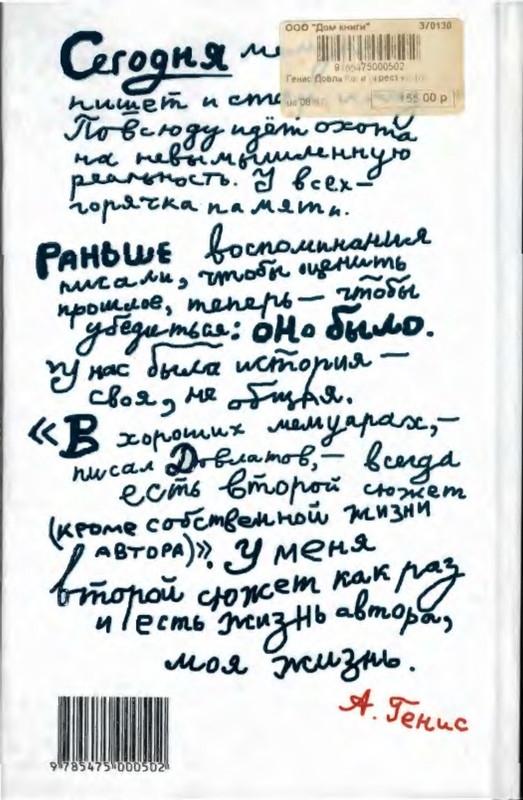 ООО "Дом книги" 370130
9785475000502
155.00 р
Сегодня
пишет и
Повсюду идёт охота
на невымышленную
реальность. У всех –
горячка памяти.
РАНЬШЕ воспоминания
писали, чтобы оценить
прошлое, теперь – чтобы
убедиться: оно было.
У нас была история –
своя, не общая.
«В хороших мемуарах, –
писал Довлатов, – всегда
есть второй сюжет
(кроме собственной жизни
АВТОРА)». У меня
второй сюжет как раз
и есть жизнь автора,
моя жизнь.
А. Генис
9 785475 000502